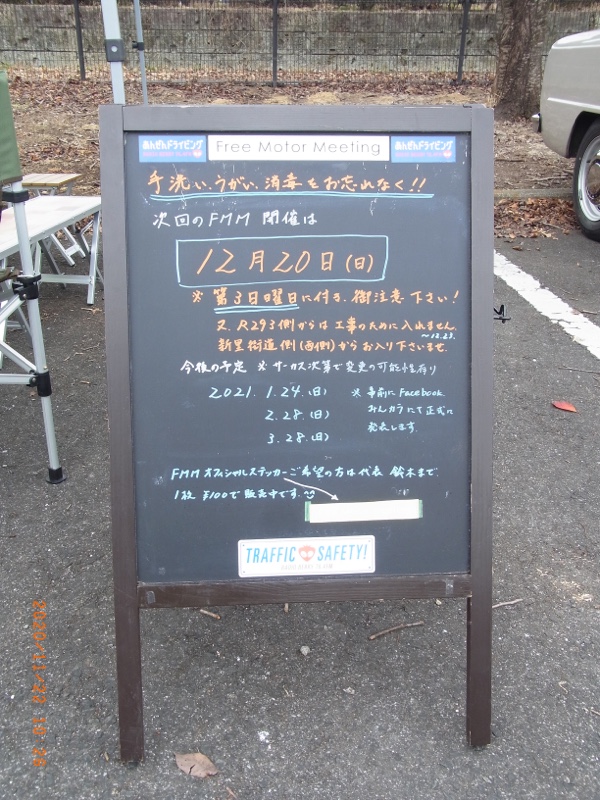 あんぜんドライビング Free Motor Meeting あんぜんドライビング
手洗い、うがい、消毒をお忘れなく!!
次回のFMM 開催は
12月20日(日)
※ 第3日曜日に付き、御注意下さい!
又、R293側からは工事のために入れません。
～12.23.
新里街道側(西側)からお入り下さいませ。
今後の予定 ※サーカス次第で変更の可能性有り
2021. 1.24.(日) ※事前にFacebook
2.28.(日) みんカラにて正式に
3.28.(日) 発表します
FMMオフィシャルステッカーご希望の方は代表 鈴木まで。
1枚 ¥100で販売中です。
TRAFFIC SAFETY!